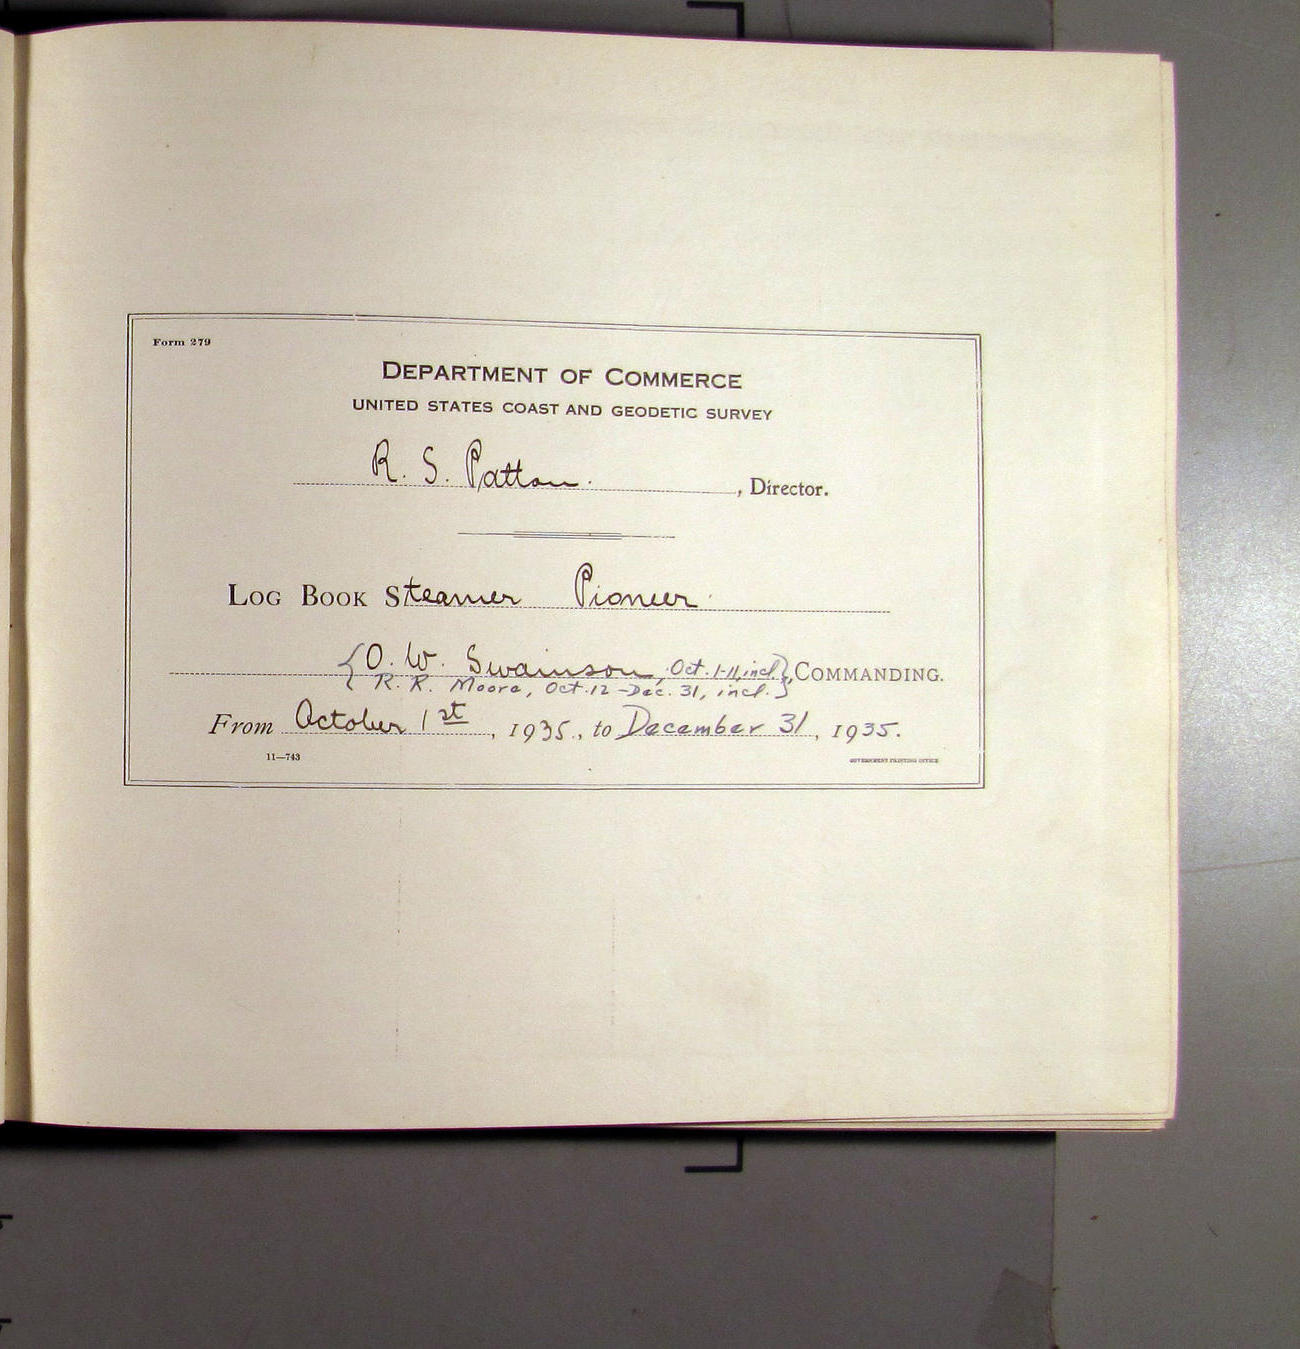 Form 279
DEPARTMENT OF COMMERCE
UNITED STATES COAST AND GEODETIC SURVEY
R. S. Patton. , Director.
LOG BOOK Steamer Pioneer
{O. W. Swainson, Oct. 1-11, incl.}, COMMANDING.
R. R. Moore, Oct. 12 - Dec. 31, incl.
From October 1st, 1935., to December 31, 1935.
11—743 GOVERNMENT PRINTING OFFICE